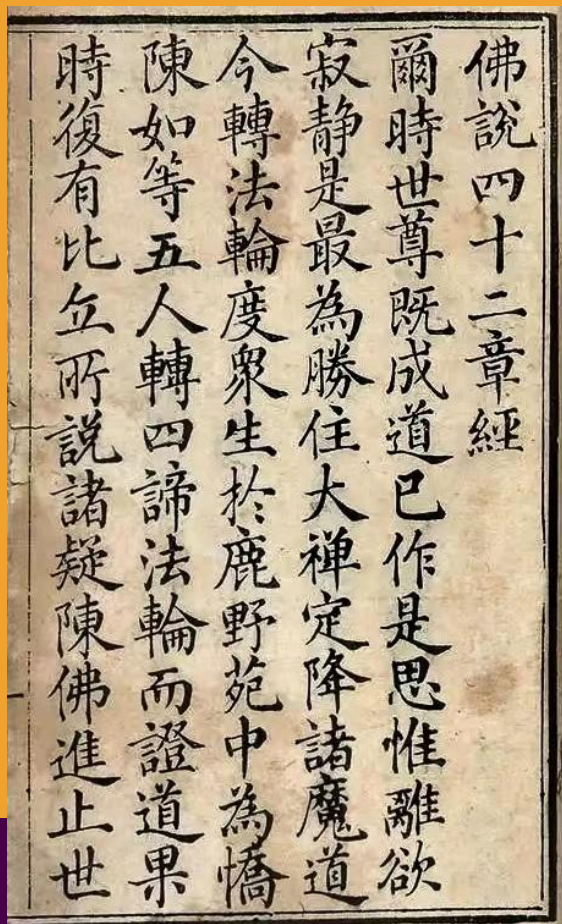 佛說四十二章經
爾時世尊既成道已作是思惟離欲
寂静是最為勝住大禅定降諸魔道
今轉法輪度眾生於鹿野苑中為憍
陳如等五人轉四諦法輪而證道果
時復有比丘所説諸疑陳佛進止世